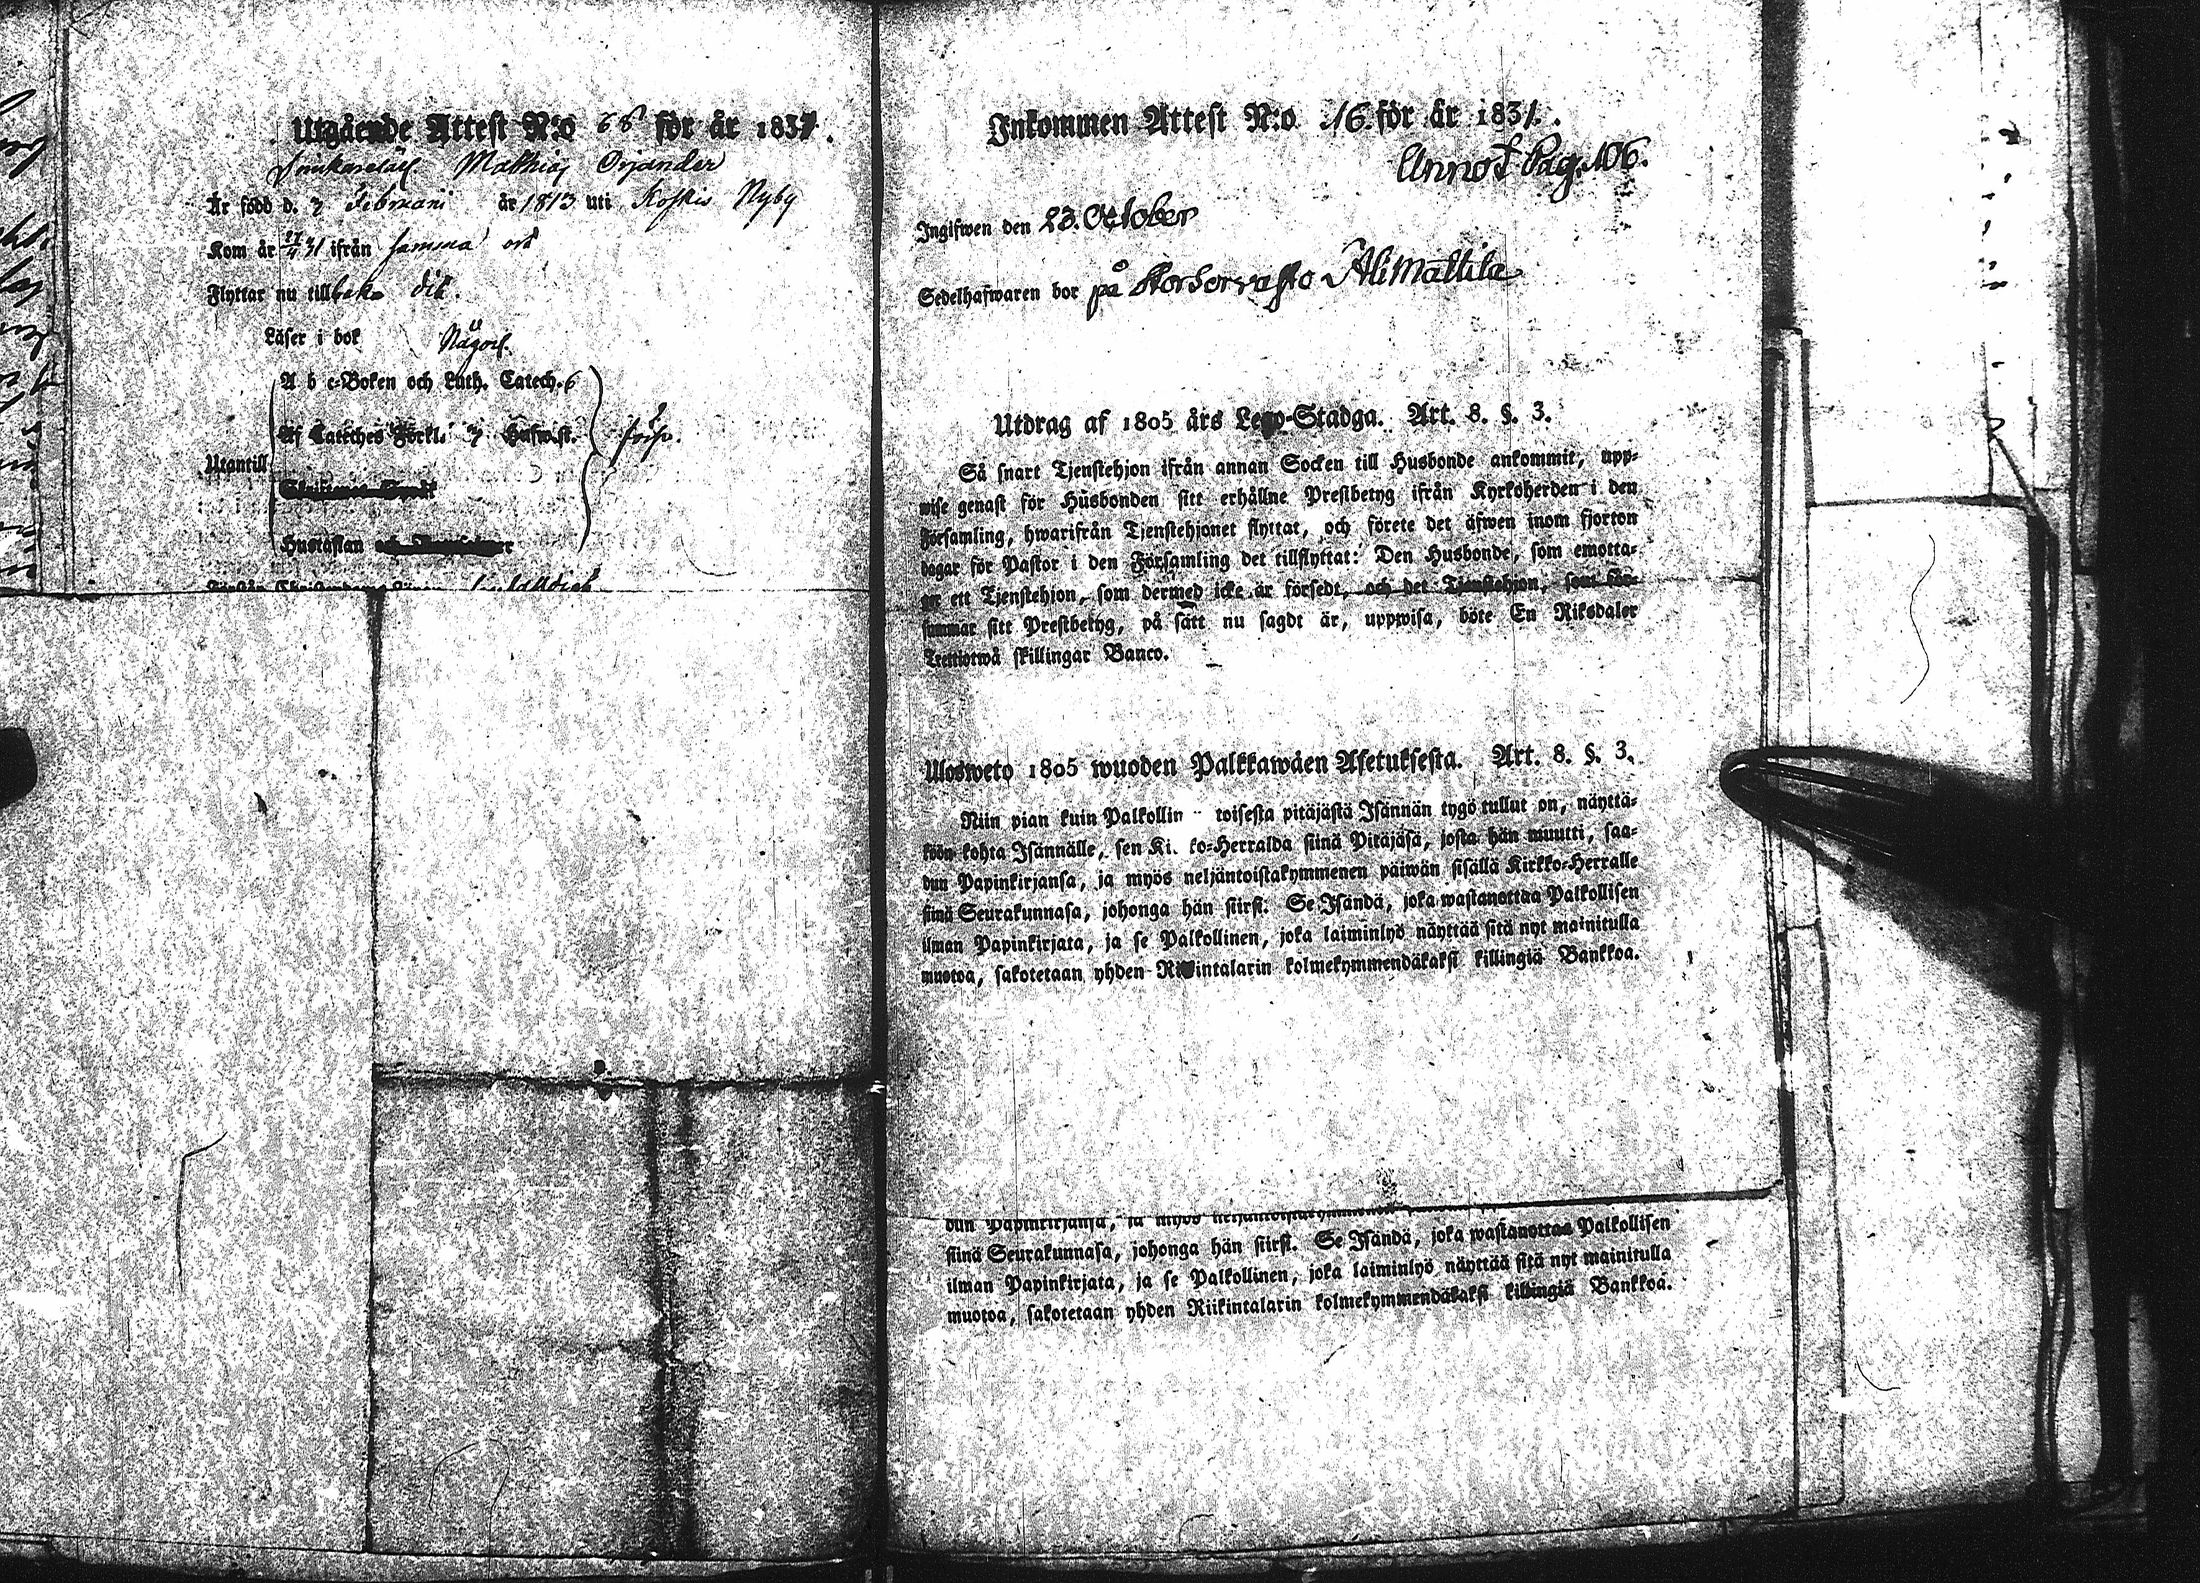 Utgående Attest N:o 68 för år 1831.
Mathias Orjander
Är född d. 7 Februarii år 1813 uti Koskis Nyby
Kom år 31 ifrån samma ort
Flyttar nu tillbaka dit.
Läser i bok Någorl.
A b c-Boken och Luth. Catech. 6
Af Cateches Förkl. 7 Hufw.st.
Utantill
Hustaflan
Inkommen Attest N:o 16. för år 1831.
Annot. Pag. 106.
Ingifwen den 23. October
Sedelhafwaren bor på Alimattila
Utdrag af 1805 års Lego-Stadga. Art. 8. §. 3.
Så snart Tjenstehjon ifrån annan Socken till Husbonde ankommit, upp-
wise genast för Husbonden sitt erhållne Prestbetyg ifrån Kyrkoherden i den
Församling, hwarifrån Tjenstehjonet flyttat, och förete det äfwen inom fjorton
dagar för Pastor i den Församling det tillflyttat. Den Husbonde, som emotta-
ger ett Tjenstehjon, som dermed icke är försedt, och det Tjenstehjon, som för-
summar sitt Prestbetyg, på sätt nu sagdt är, uppwisa, böte En Riksdaler
Trettiotwå skillingar Banco.
Ulosweto 1805 wuoden Palkkawäen Asetuksesta. Art. 8. §. 3.
Niin pian kuin Palkollin toisesta pitäjästä Isännän tygö tullut on, näyttä-
köön kohta Isännälle, sen Ki ko-Herralda siinä Pitäjäsä, josta hän muutti, saa-
dun Papinkirjansa, ja myös neljäntoistakymmenen päiwän sisällä Kirkko-Herralle
siinä Seurakunnasa, johonga hän siirsi. Se Isändä, joka wastanottaa Palkollisen
ilman Papinkirjata, ja se Palkollinen, joka laiminlyö näyttää sitä nyt mainitulla
muotoa, sakotetaan yhden Riikintalarin kolmekymmendäkaksi killingiä Bankkoa.
dun Papinkirjansa, ja myös neljäntoistakymmenen
siinä Seurakunnasa, johonga hän siirsi. Se Isändä, joka wastanottaa Palkollisen
ilman Papinkirjata, ja se Palkollinen, joka laiminlyö näyttää sitä nyt mainitulla
muotoa, sakotetaan yhden Riikintalarin kolmekymmendäkaksi killingiä Bankkoa.